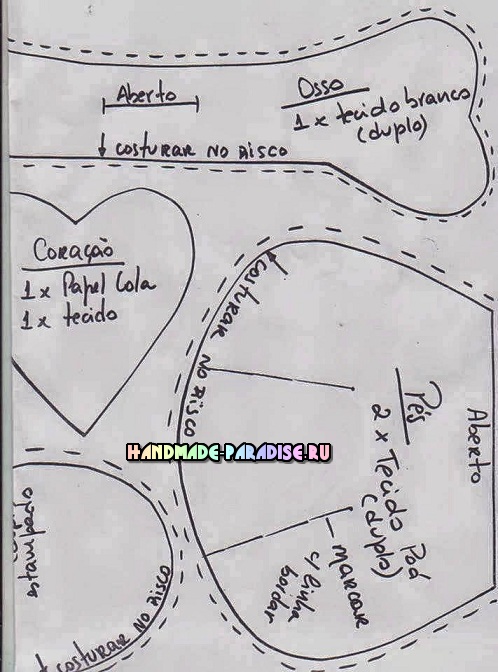 Aberto
Osso
1 x tecido branco
(duplo)
costurar no risco
Coração
1 x Papel Cola
1 x tecido
costurar no risco
Pés
2 x Tecido
(duplo)
Aberto
marcar
s/ linha
HANDMADE-PARADISE.RU
estampado
costurar no risco